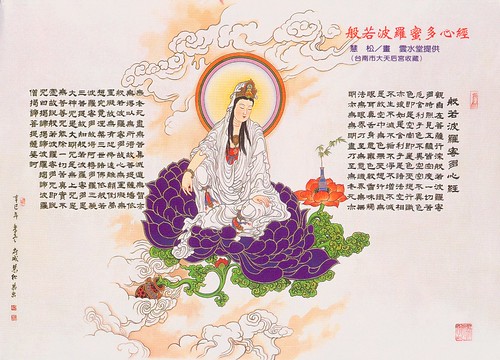 般若波羅蜜多心經
慧 松／畫 雲水堂提供
(台南市大天后宮收藏)
般若波羅蜜多心經
觀自在菩薩行深般若波羅蜜
多時照見五蘊皆空度一切苦
厄舍利子色不異空空不異色
色即是空空即是色受想行識
亦復如是舍利子是諸法空相
不生不滅不垢不淨不增不減
是故空中無色無受想行識無
眼耳鼻舌身意無色聲香味觸
法無眼界乃至無意識界無無
明亦無無明盡乃至無老死亦
無老死盡無苦集滅道無智亦
無得以無所得故菩提薩埵依
般若波羅蜜多故心無罣礙無
罣礙故無有恐怖遠離顛倒夢
想究竟涅槃三世諸佛依般若
波羅蜜多故得阿耨多羅三藐
三菩提故知般若波羅蜜多是
大神咒是大明咒是無上咒是
無等等咒能除一切苦真實不
虛故說般若波羅蜜多咒即說
咒曰揭諦揭諦波羅揭諦波羅
僧揭諦菩提薩婆訶